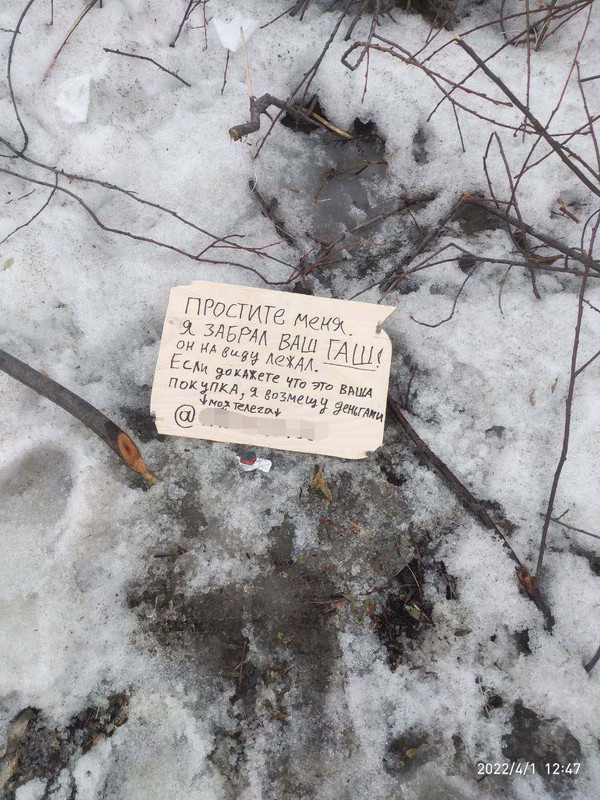 ПРОСТИТЕ меня.
Я ЗАБРАЛ ВАШ ГАШ!
он на виду лежал.
Если докажете что это ваша
покупка, я возмещу деньгами
↓моя телега↓
@
2022/4/1 12:47